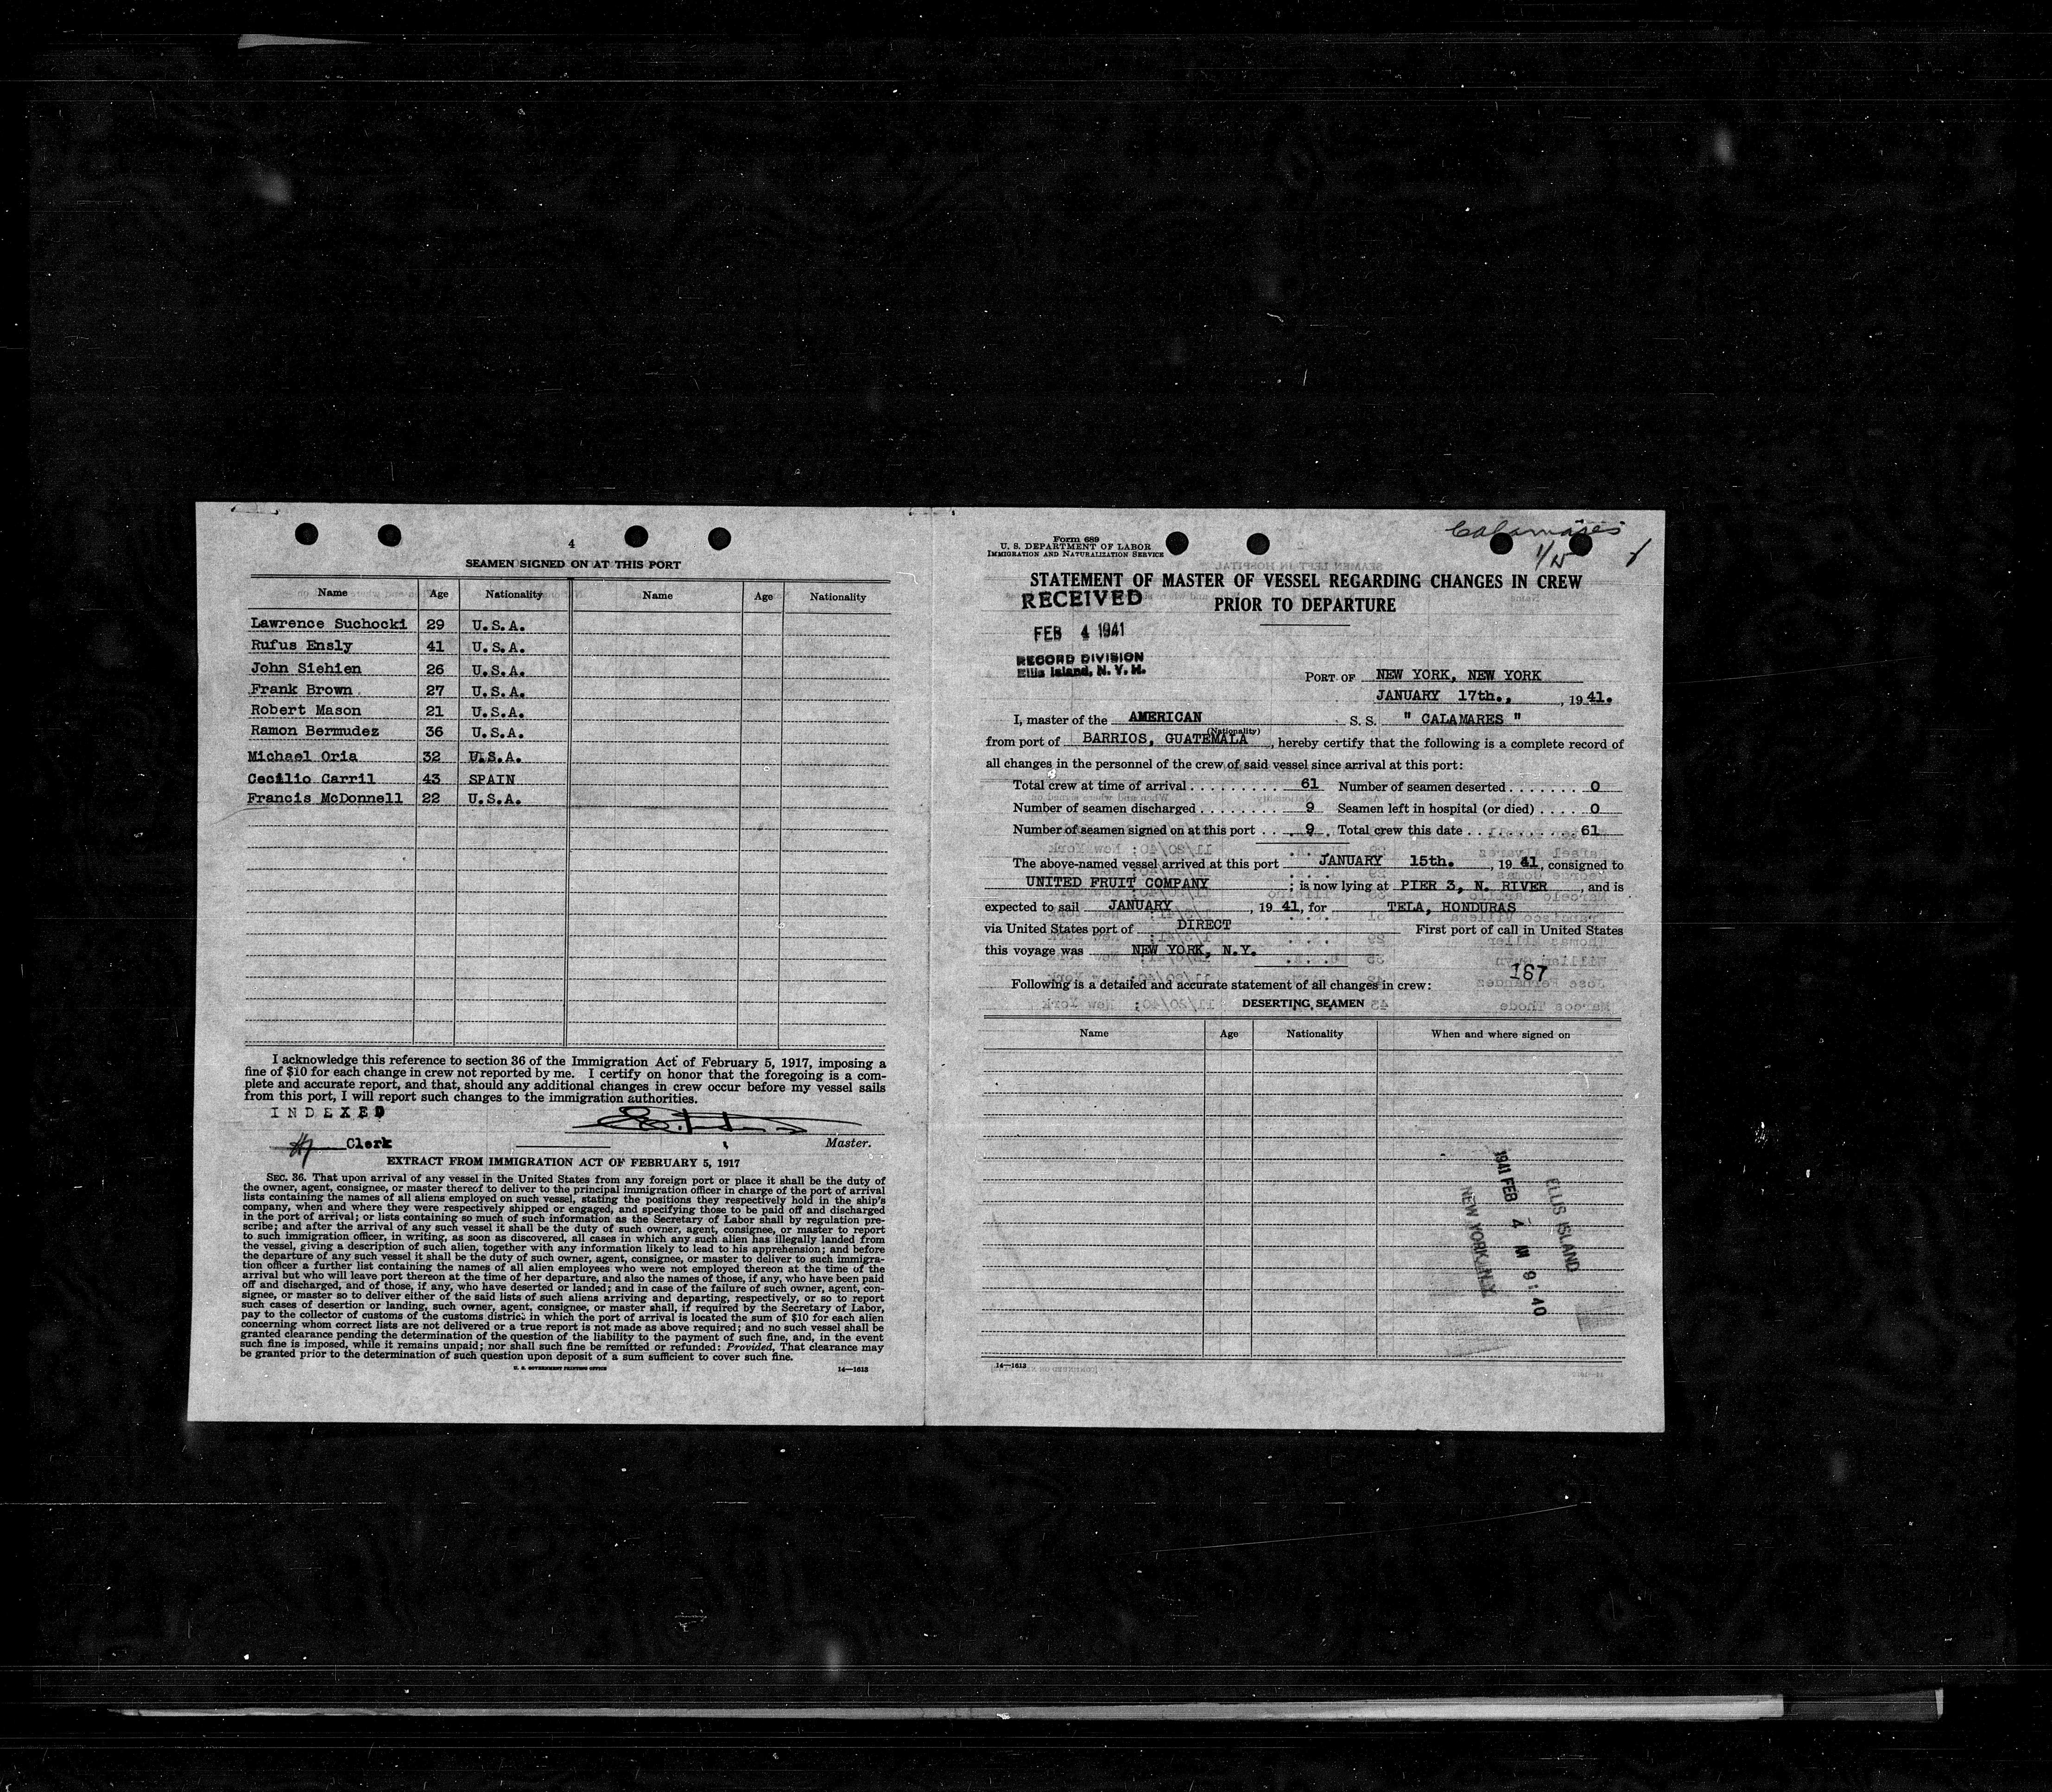 4
SEAMEN SIGNED ON AT THIS PORT
Name Age Nationality Name Age Nationality
Lawrence Suchocki 29 U.S.A.
Rufus Ensly 41 U.S.A.
John Siehien 26 U.S.A.
Frank Brown 27 U.S.A.
Robert Mason 21 U.S.A.
Ramon Bermudez 36 U.S.A.
Michael Oria 32 U.S.A.
Cecilio Carril 43 SPAIN
Francis McDonnell 22 U.S.A.
I acknowledge this reference to section 36 of the Immigration Act of February 5, 1917, imposing a
fine of $10 for each change in crew not reported by me. I certify on honor that the foregoing is a com-
plete and accurate report, and that, should any additional changes in crew occur before my vessel sails
from this port, I will report such changes to the immigration authorities.
INDEXED
Clerk
Master.
EXTRACT FROM IMMIGRATION ACT OF FEBRUARY 5, 1917
SEC. 36. That upon arrival of any vessel in the United States from any foreign port or place it shall be the duty of
the owner, agent, consignee, or master thereof to deliver to the principal immigration officer in charge of the port of arrival
lists containing the names of all aliens employed on such vessel, stating the positions they respectively hold in the ship's
company, when and where they were respectively shipped or engaged, and specifying those to be paid off and discharged
in the port of arrival; or lists containing so much of such information as the Secretary of Labor shall by regulation pre-
scribe; and after the arrival of any such vessel it shall be the duty of such owner, agent, consignee, or master to report
to such immigration officer, in writing, as soon as discovered, all cases in which any such alien has illegally landed from
the vessel, giving a description of such alien, together with any information likely to lead to his apprehension; and before
the departure of any such vessel it shall be the duty of such owner, agent, consignee, or master to deliver to such immigra-
tion officer a further list containing the names of all alien employees who were not employed thereon at the time of the
arrival but who will leave port thereon at the time of her departure, and also the names of those, if any, who have been paid
off and discharged, and of those, if any, who have deserted or landed; and in case of the failure of such owner, agent, con-
signee, or master so to deliver either of the said lists of such aliens arriving and departing, respectively, or so to report
such cases of desertion or landing, such owner, agent, consignee, or master shall, if required by the Secretary of Labor,
pay to the collector of customs of the customs district in which the port of arrival is located the sum of $10 for each alien
concerning whom correct lists are not delivered or a true report is not made as above required; and no such vessel shall be
granted clearance pending the determination of the question of the liability to the payment of such fine, and, in the event
such fine is imposed, while it remains unpaid; nor shall such fine be remitted or refunded: Provided, That clearance may
be granted prior to the determination of such question upon deposit of a sum sufficient to cover such fine.
U. S. GOVERNMENT PRINTING OFFICE 14—1613
Calamares
Form 689
U. S. DEPARTMENT OF LABOR
IMMIGRATION AND NATURALIZATION SERVICE
STATEMENT OF MASTER OF VESSEL REGARDING CHANGES IN CREW
PRIOR TO DEPARTURE
RECEIVED
FEB 4 1941
RECORD DIVISION
Ellis Island, N. Y. H.
PORT OF NEW YORK, NEW YORK
JANUARY 17th., , 19 41.
I, master of the AMERICAN S. S. " CALAMARES "
(Nationality)
from port of BARRIOS, GUATEMALA , hereby certify that the following is a complete record of
all changes in the personnel of the crew of said vessel since arrival at this port:
Total crew at time of arrival . . . . . . . . . . 61 Number of seamen deserted . . . . . . . . 0
Number of seamen discharged . . . . . . . . 9 Seamen left in hospital (or died) . . . . . 0
Number of seamen signed on at this port . . . 9 . Total crew this date . . . . . . . . . 61
The above-named vessel arrived at this port JANUARY 15th. , 19 41, consigned to
UNITED FRUIT COMPANY ; is now lying at PIER 3, N. RIVER , and is
expected to sail JANUARY , 19 41, for TELA, HONDURAS
via United States port of DIRECT First port of call in United States
this voyage was NEW YORK, N.Y.
167
Following is a detailed and accurate statement of all changes in crew:
DESERTING SEAMEN
Name Age Nationality When and where signed on
1941 FEB 4 AM 9:40
ELLIS ISLAND
NEW YORK N.Y.
14—1613